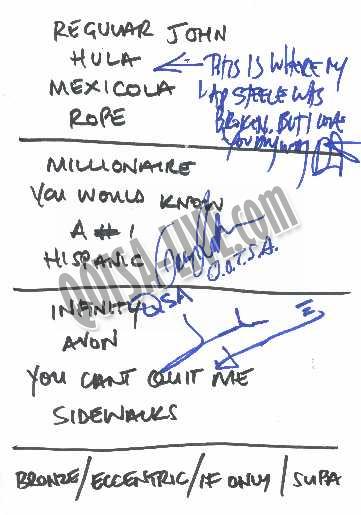 REGULAR JOHN
HULA
← THIS IS WHERE MY
MEXICOLA
LAP STEELE WAS
BROKEN. BUT I LOVE
ROPE
YOU ANYWAY
MILLIONAIRE
YOU WOULD KNOW
A #1
HISPANIC
Q.O.T.S.A.
QOTSA-LIVE.COM
INFINITY
AVON
YOU CANT QUIT ME
SIDEWALKS
BRONZE/ECCENTRIC/IF ONLY/SUPA